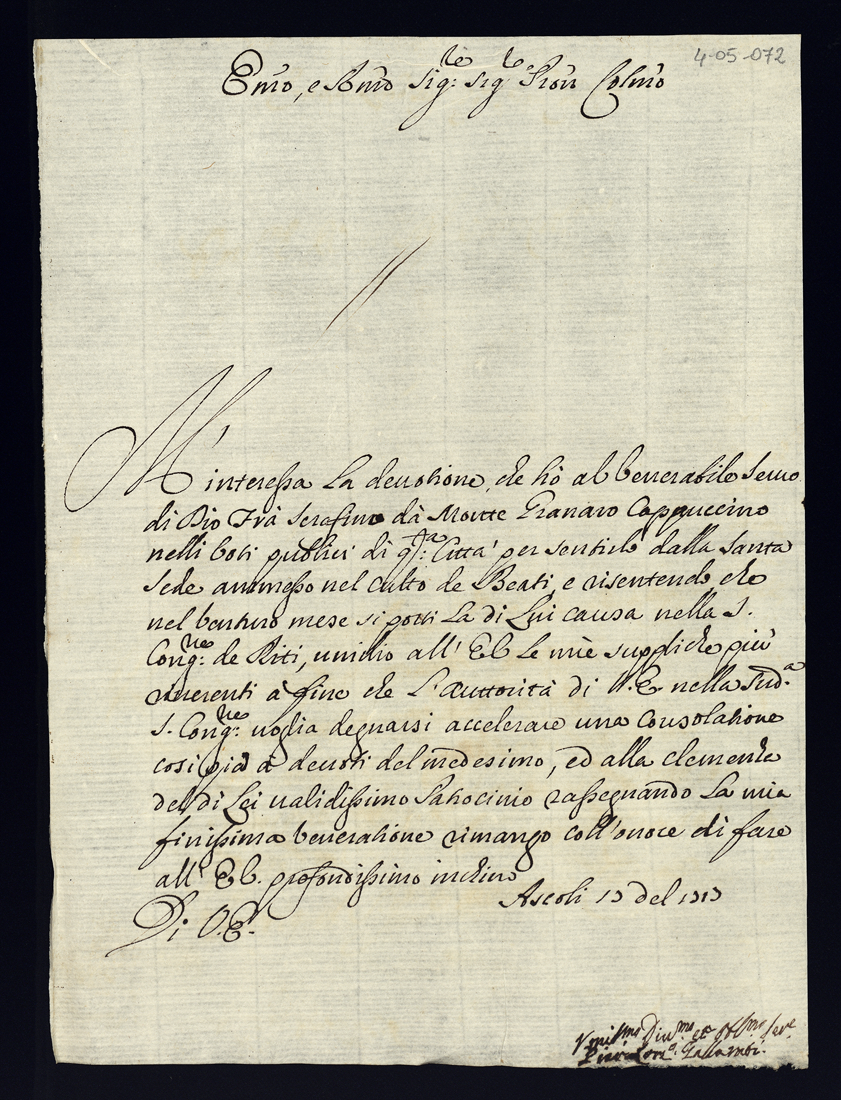 4-05-072
Emo, e Rmo Sig:re Sig:re Pron Colmo
M'interessa la devotione, che hò al Venerabile Servo
di Dio Frà Serafino dà Monte Granaro Cappuccino
nelli Voti publici di q:ta Città per sentirlo dalla Santa
Sede ammesso nel culto de Beati, e risentendo che
nel venturo mese si porti la di Lui causa nella S.
Cong:ne de Riti, umilio all' E.V. le mie suppliche più
riverenti à fine che l'auttorità di V.E. nella sud.a
S. Cong:ne voglia degnarsi accelerare una consolatione
cosi pia à devoti del medesimo, ed alla clemenza
del di Lei validissimo Patrocinio rassegnando la mia
finissima Veneratione rimango coll'onore di fare
all' E.V. profondissimo inchino
Ascoli 13 del 1713
Di V.E.
Vmil:mo Div:mo et Obl:mo Ser:e